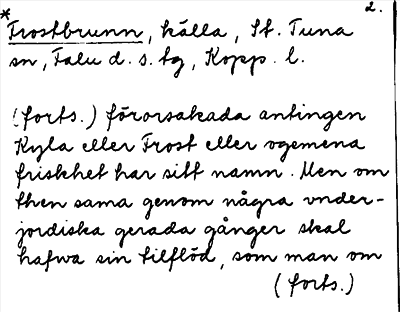 2.
*Frostbrunn, källa, St. Tuna
sn, Falu d. s. tg, Kopp. l.
(forts.) förorsakada antingen
Kyla eller Frost eller ogemena
friskhet har sitt namn. Men om
then sama genom några vnder-
jordiska gerada gånger skal
hafwa sin tilflöd, som man om
(forts.)